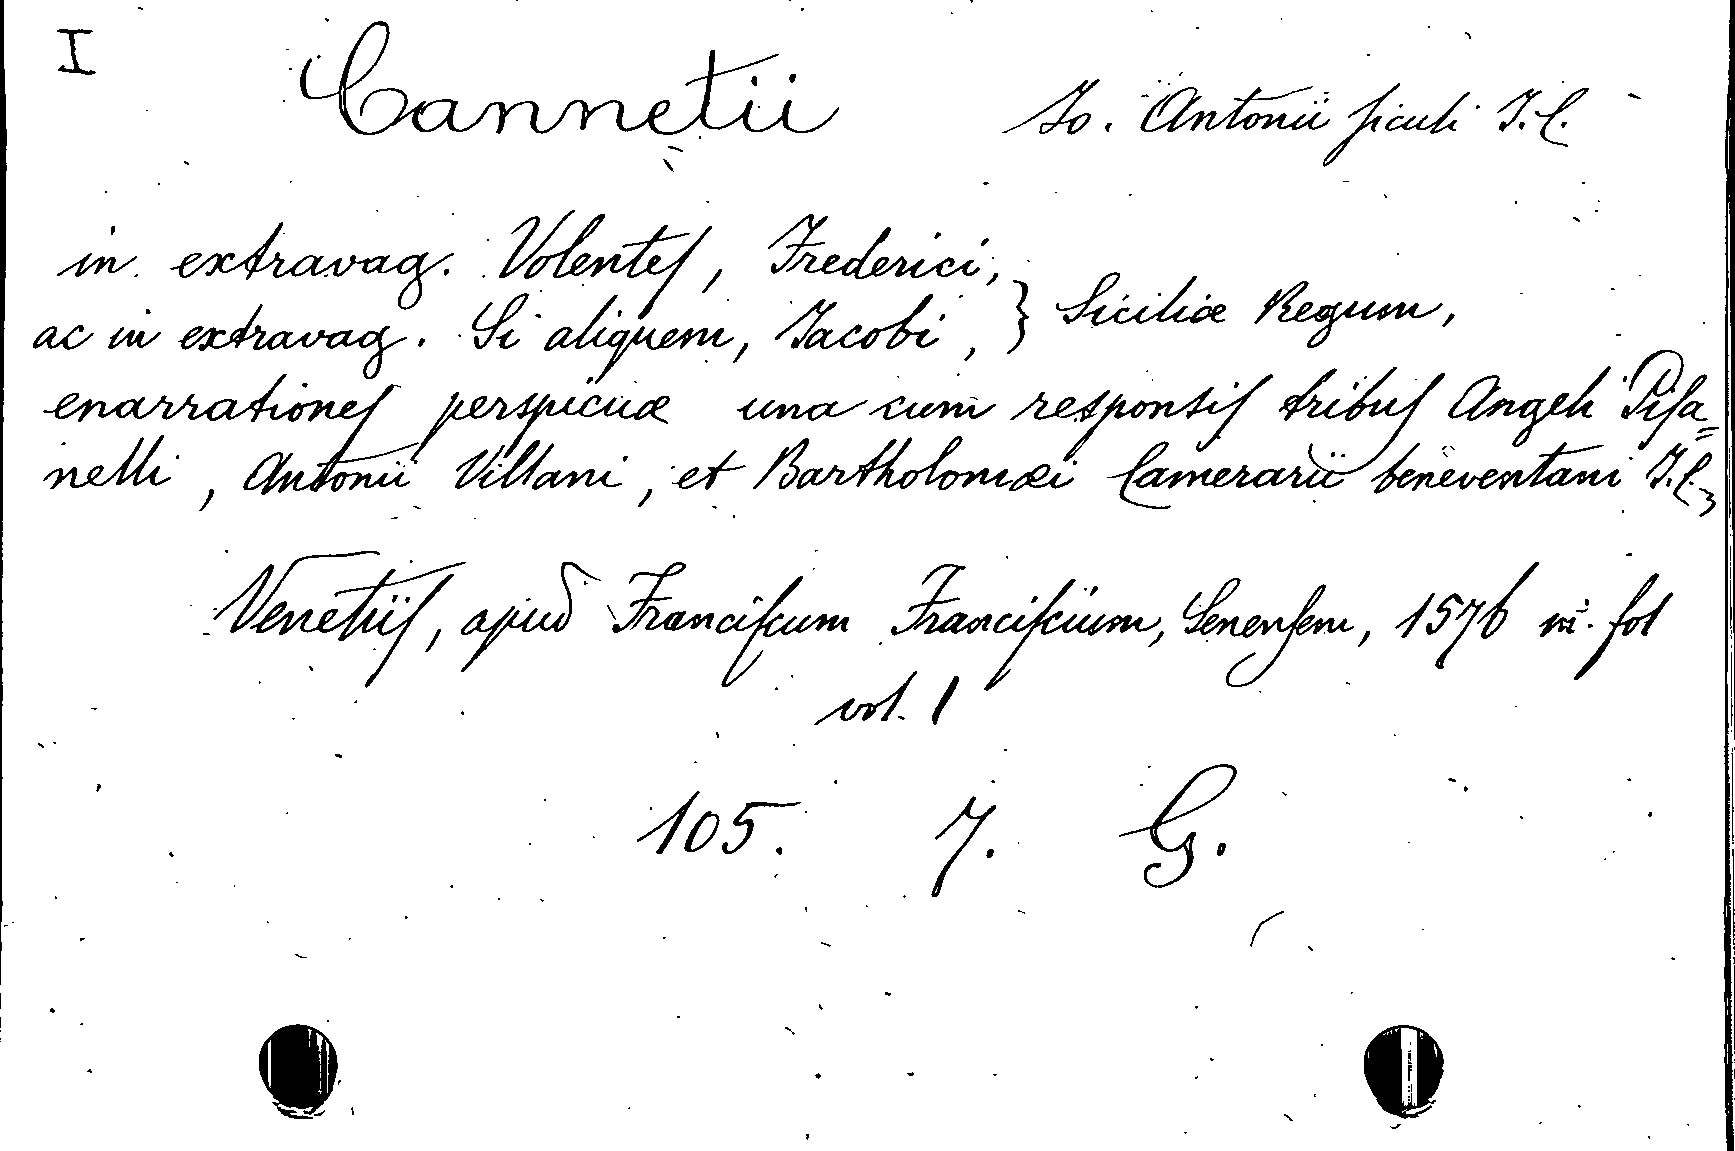 I
Cannetii Io. Antonii siculi I.C.
in extravag. Volentes, Frederici,
ac in extravag. Si aliquem, Iacobi, } Siciliæ Regum,
enarrationes perspicuæ una cum responsis tribus Angeli Pisa=
nelli, Antonii Villani, et Bartholomæi Camerarii beneventani I.C.
Venetiis, apud Franciscum Franciscium, Senensem, 1576 in fol
vol. 1
105. 7. G.